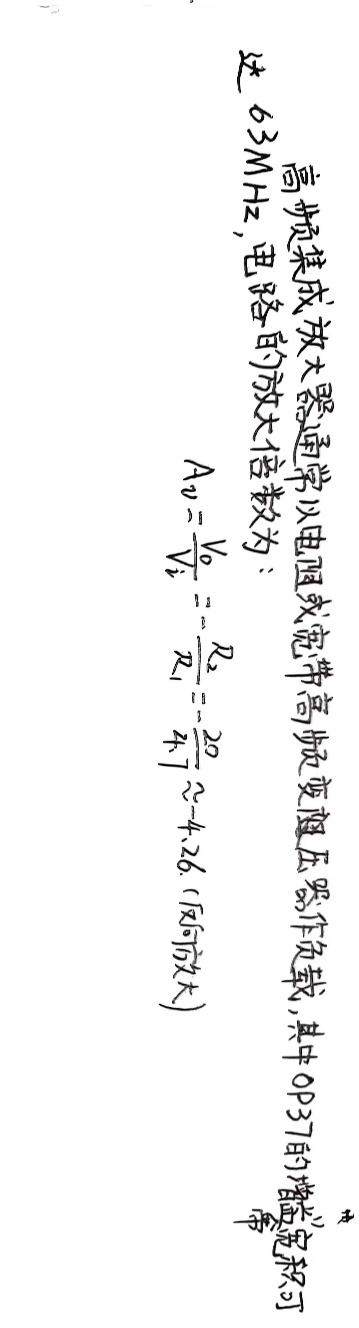 高频集成放大器通常以电阻或宽带高频变压器作负载,其中OP37的增益宽积可
带
达63MHz,电路的放大倍数为:
Av = Vo/Vi = -R2/R1 = -20/4.7 ≈ -4.26.(反向放大)